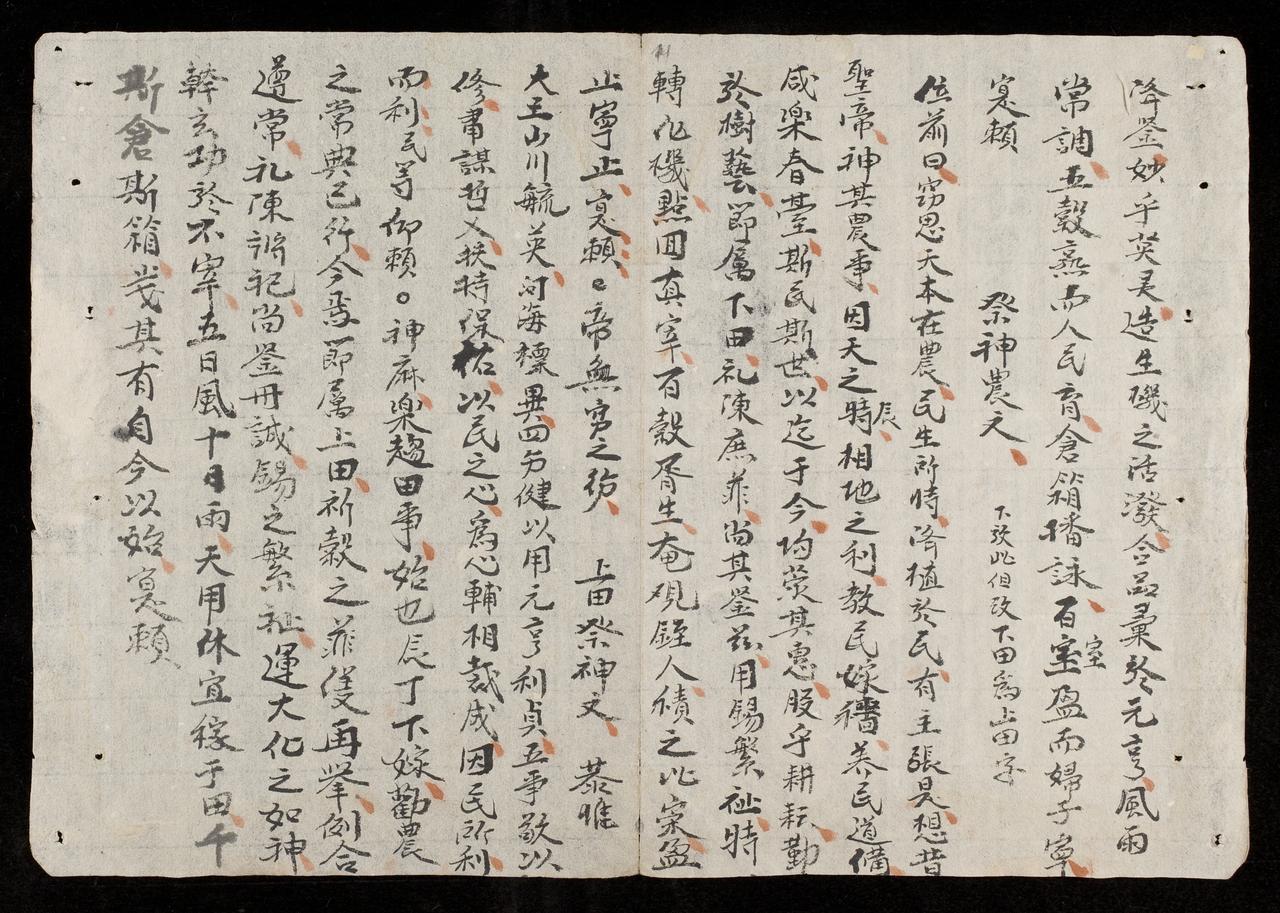 降鉴妙乎英灵造生磯之活潑合品彙於元亨風雨
常調五穀熟而人民育倉箱播詠百室盈而婦子寧
寔賴
祭神農文 下致此但改下田爲上田字
位前曰窃思天本在農民生所時降植於民有主張是想昔
聖帝神其農事因天之時辰相地之利教民嫁穡养民道備
咸楽春臺斯民斯世以迄于今均荧其惠股乎耕耘勤
於樹藝節属下田礼陳庶菲尚其鉴茲用錫繁祉時
轉化機點囬真宰百穀胥生奄观銍人積之比崇盈
止寧止寔賴帝無穷之 上田祭神文 恭惟
大王山川毓英河海標異四 健以用元亨利貞五事敬以
修肅謀哲乂扶持保祐以民之心爲心輔相裁成因民所利
而利民等仰賴神庥楽趨田事始也辰丁下嫁勸農
之常典已行今 節属上田祈穀之菲 再挙例合
遵常礼陳 祀尚鉴冊誠錫之繁祉運大化之如神
幹玄功於不宰五日風十日雨天用休宜稼于田千
斯倉斯箱歲其有自今以始寔賴